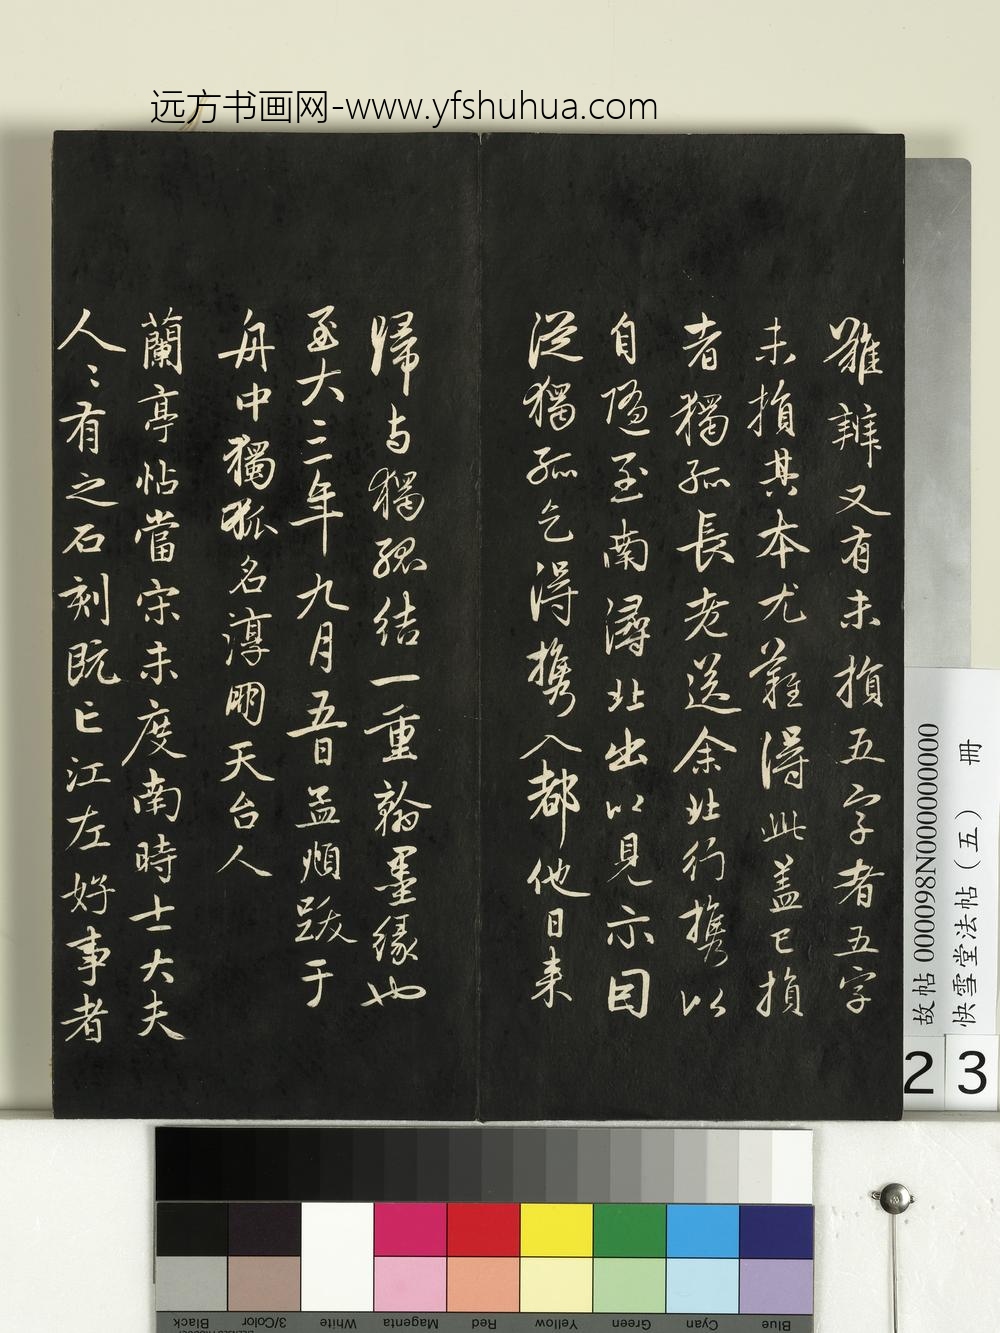 远方书画网-www.yfshuhua.com
難辨又有未損五字者五字
未損其本尤難得此蓋已損
者獨孤長老送余北行攜以
自隨至南潯北出以見示因
從獨孤乞得攜入都他日來
歸与獨孤結一重翰墨緣也
至大三年九月五日孟頫跋于
舟中獨孤名淳朋天台人
蘭亭帖當宋未度南時士大夫
人〻有之石刻既亡江左好事者
故帖 000098N000000000
快雪堂法帖（五） 冊
2 3
Black
3/Color
White
Magenta
Red
Yellow
Green
Cyan
Blue